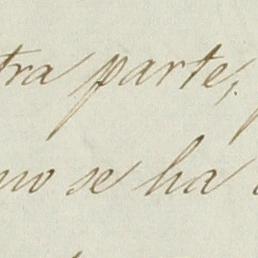 tra parte;
no se ha